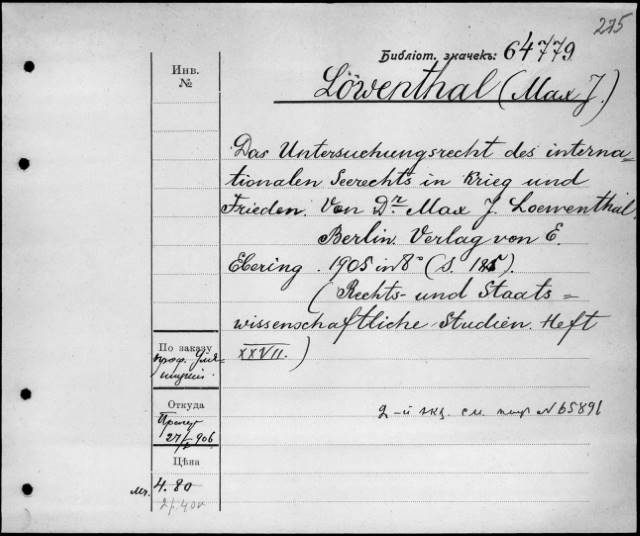 275
Библіот. значекъ: 64779
Инв.
№
Löwenthal (Max J.)
Das Untersuchungsrecht des interna=
tionalen Seerechts in Krieg und
Frieden. Von Dr. Max J. Loewenthal.
Berlin. Verlag von E.
Ebering. 1905 in 8° (S. 185).
(Rechts- und Staats=
wissenschaftliche Studien. Heft
XXVII.)
По заказу
проф.
Откуда
27/X 906
2-й экз. см. под № 65891
Цѣна
Mr. 4. 80